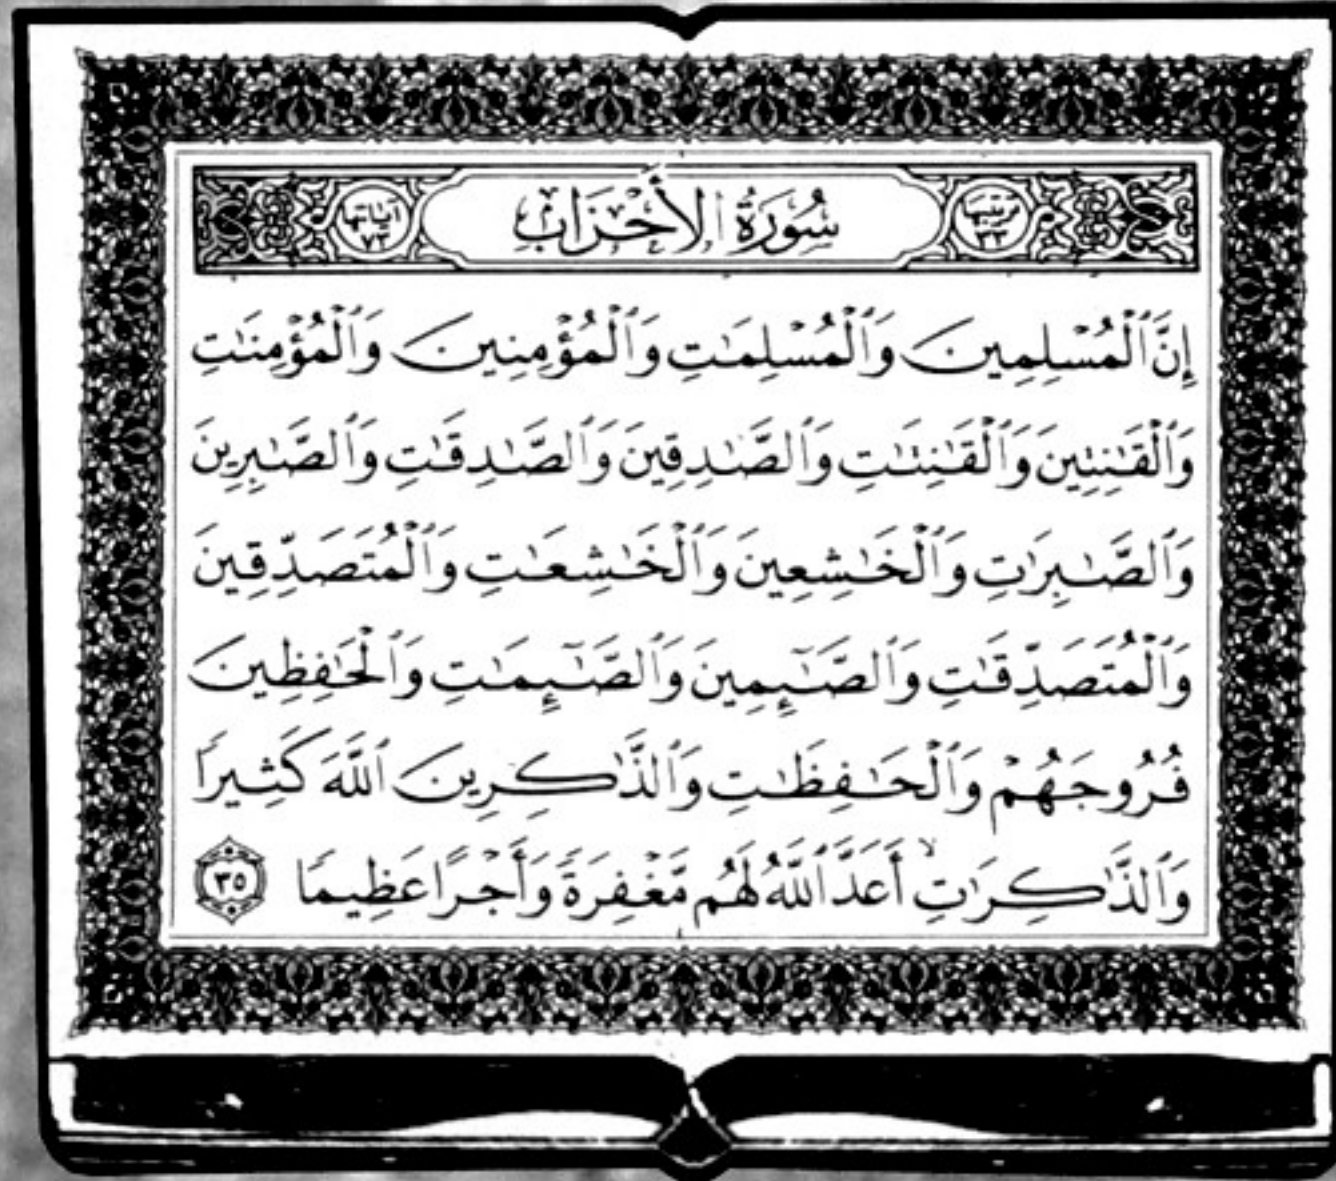 ترتيبها ٣٣ سُورَةُ الأَحْزَابِ آياتها ٧٣
إِنَّ ٱلْمُسْلِمِينَ وَٱلْمُسْلِمَٰتِ وَٱلْمُؤْمِنِينَ وَٱلْمُؤْمِنَٰتِ
وَٱلْقَٰنِتِينَ وَٱلْقَٰنِتَٰتِ وَٱلصَّٰدِقِينَ وَٱلصَّٰدِقَٰتِ وَٱلصَّٰبِرِينَ
وَٱلصَّٰبِرَٰتِ وَٱلْخَٰشِعِينَ وَٱلْخَٰشِعَٰتِ وَٱلْمُتَصَدِّقِينَ
وَٱلْمُتَصَدِّقَٰتِ وَٱلصَّٰٓئِمِينَ وَٱلصَّٰٓئِمَٰتِ وَٱلْحَٰفِظِينَ
فُرُوجَهُمْ وَٱلْحَٰفِظَٰتِ وَٱلذَّٰكِرِينَ ٱللَّهَ كَثِيرًا
وَٱلذَّٰكِرَٰتِ أَعَدَّ ٱللَّهُ لَهُم مَّغْفِرَةً وَأَجْرًا عَظِيمًا ٣٥